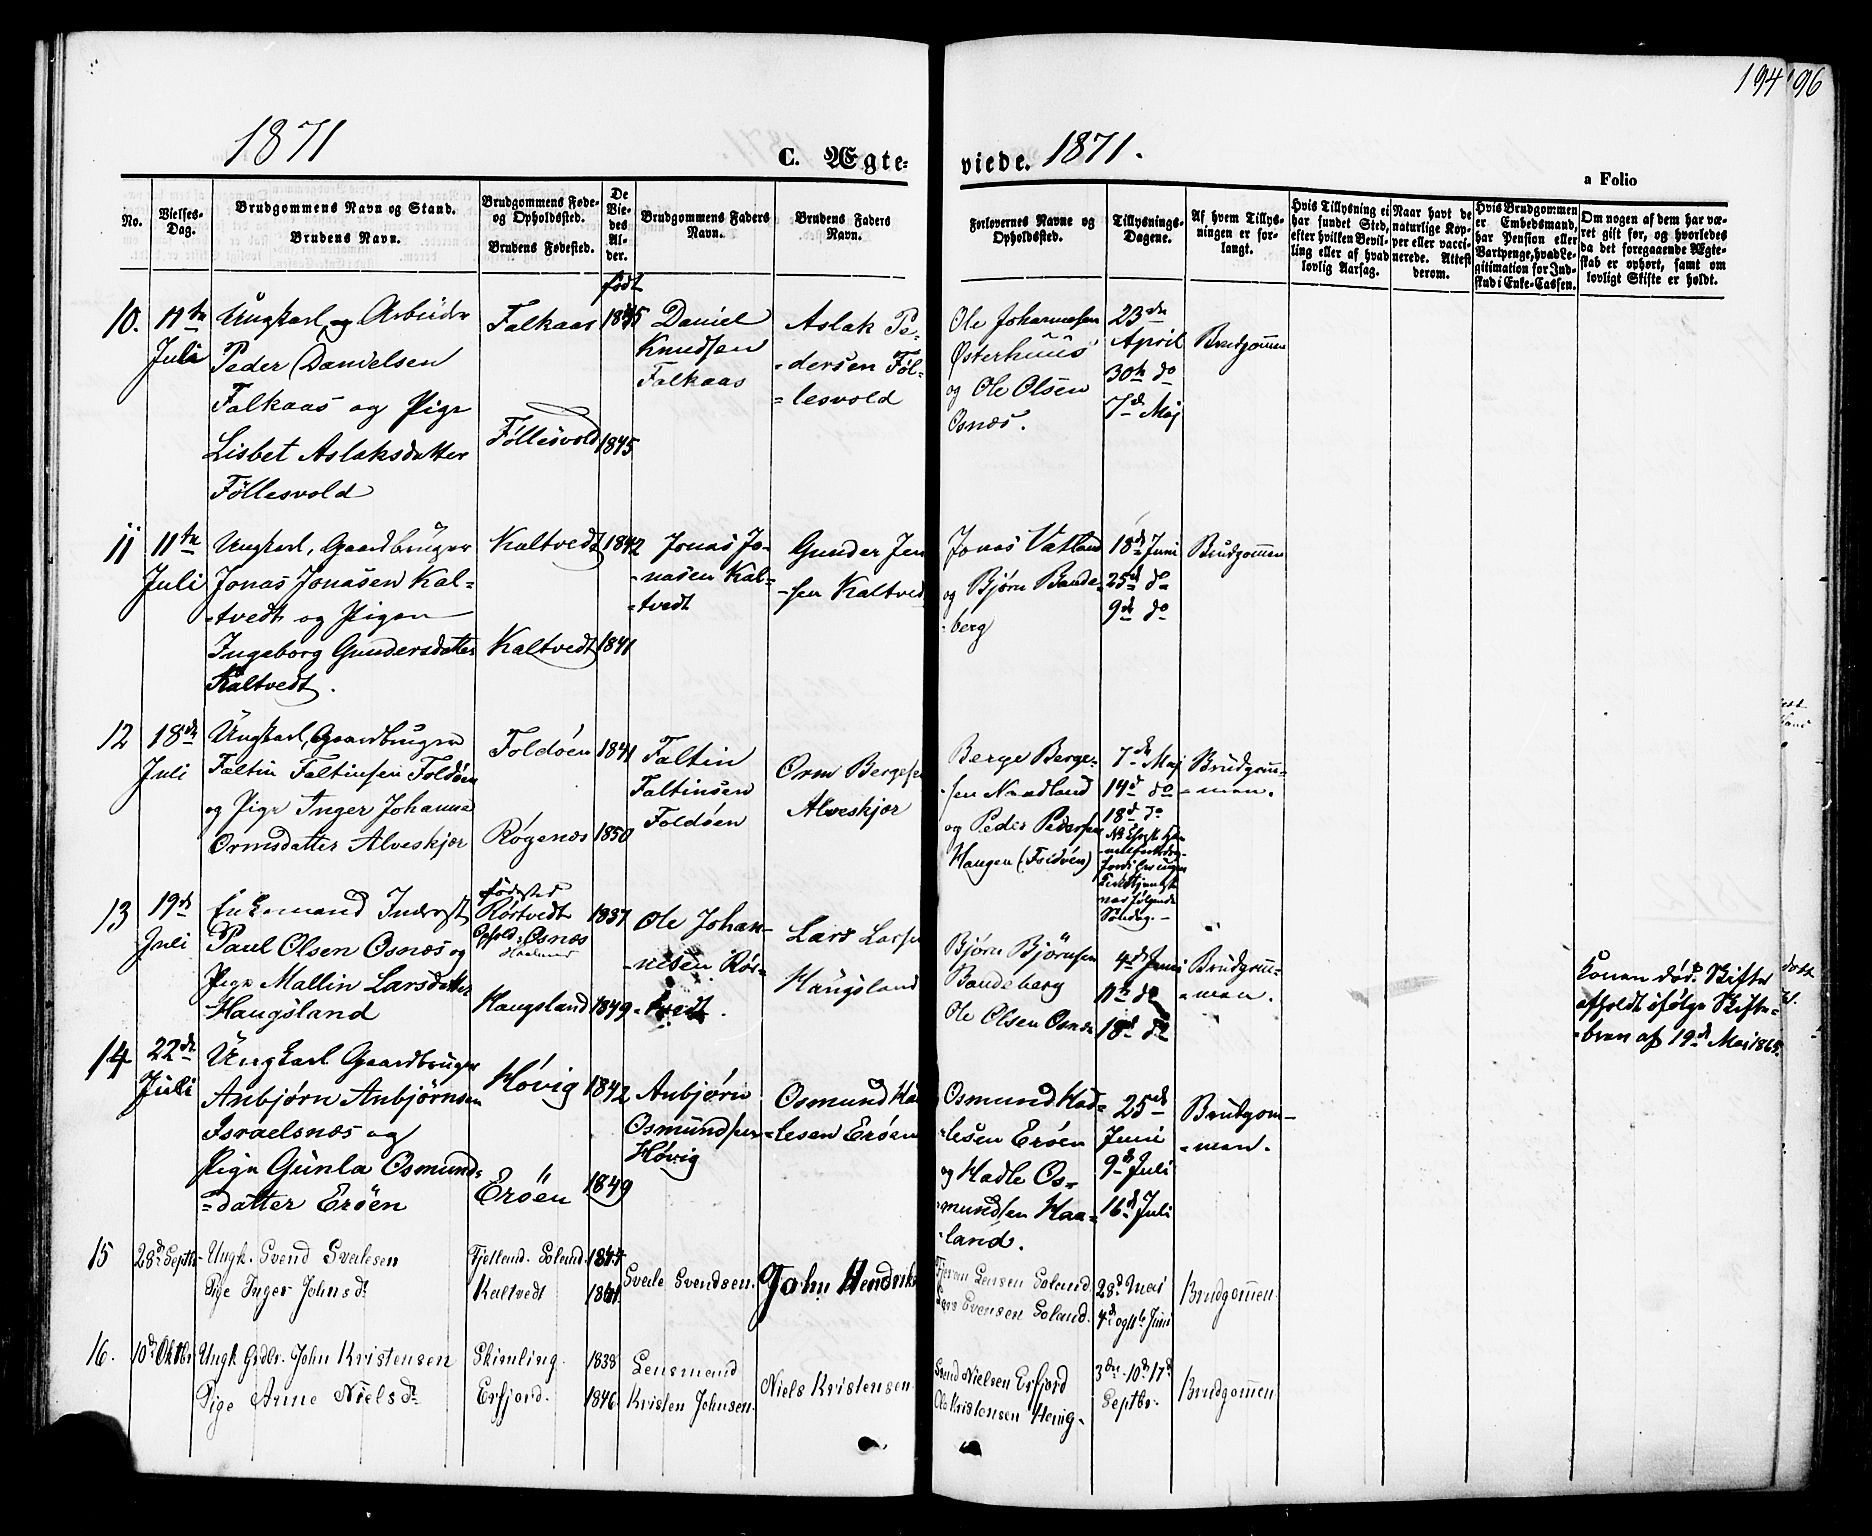 194 96
1871
C. Ægte-
viede. 1871.
a Folio
No.
Vielses-
Dag.
Brudgommens Navn og Stand.
Brudens Navn.
Brudgommens Føde-
og Opholdssted.
Brudens Fødested.
De
Vie-
des
Al-
der.
født
Brudgommens Faders
Navn.
Brudens Faders
Navn.
Forlovernes Navne og
Opholdssted.
Tillysnings-
Dagene.
Af hvem Tillys-
ningen er for-
langt.
Hvis Tillysning ei
har fundet Sted,
efter hvilken Bevil-
ling eller af hvad
lovlig Aarsag.
Naar havt de
naturlige Kop-
per eller vacci-
nerede. Attest
derom.
Hvis Brudgommen
er Embedsmand,
har Pension eller
Vartpenge, hvad Le-
gitimation for Ind-
skud i Enke-Cassen.
Om nogen af dem har væ-
ret gift før, og hvorledes
da det foregaaende Ægte-
skab er ophørt, samt om
lovligt Skifte er holdt.
10.
11te
Juli
Ungkarl og Arbeider
Peder Danielsen
Falkaas og Pige
Lisbet Aslaksdatter
Føllesvold
Falkaas
Føllesvold
1845
1845
Daniel
Knudsen
Falkaas
Aslak Pe-
-dersen Føl-
-lesvold
Ole Johannesen
Østerhuus
og Ole Olsen
Osnæs.
23de
April
30te do
7de Maj
Brudgommen
11
11te
Juli
Ungkarl, Gaardbruger
Jonas Jonasen Kal-
-tvedt og Pigen
Ingeborg Gundersdatter
Kaltvedt.
Kaltvedt
Kaltvedt
1842
1841
Jonas Jo-
-nasen Kal-
-tvedt
Gunder Jen
-sen Kaltved
Jonas Vatland
og Bjørn Bande-
-berg
18de Juni
25de do
9de do
Brudgommen
12
18de
Juli
Ungkarl, Gaardbruger
Faltin Faltinsen Foldøen
og Pige Inger Johanne
Ormsdatter Alveskjær
Foldøen
Røgenæs
1841
1850
Faltin
Faltinsen
Foldøen
Orm Bergesen
Alveskjær
Berge Berge-
-sen Nædland
og Peder Pedersen
Haugen (Foldøen)
7de Maj
14de do
18de do
følgende
Søndag.-
Brudgom-
-men.
13
19de
Juli
Enkemand Inderst
Paul Olsen Osnæs og
Pige Mallin Larsdatter
Haugsland
Fødested
Rørtvedt
Ophold: Osnæs
Haugsland
1837
1849
Ole Johan-
-nesen Rør-
-tvedt.
Lars Larsen
Haugsland
Bjørn Bjørnsen
Bandeberg
Ole Olsen Osnæs
4de Juni
11te do
18de do
Brudgom-
-men.
Konen død. Skifte
afholdt ifølge Skifte-
-brev af 19de Mai 1865.
14
22de
Juli
Ungkarl Gaardbruger
Anbjørn Anbjørnsen
Israelsnæs og
Pigen Gunla Osmunds-
-datter Erøen
Høvig
Erøen
1842
1849
Anbjørn
Osmundsen
Høvig
Osmund Had
-lesen Erøen
Osmund Had-
-lesen Erøen
og Hadle Os-
-mundsen Haa-
-land.
25de
Juni
9de Juli
16de Juli
Brudgom-
-men.
15
28de Septbr.
Ungk. Svend Sveilesen
Pige Inger Johnsdr
Fjelland. Eoland.
Kaltvedt
1844
1841.
Sveile Svendsen.
John Hendriks
Lensen Eoland.
Lars Evensen Eoland.
28de Mai
4de og 11te Juni
Brudgommen
16.
10de Oktbr
Ungk Grdbr. John Kristensen
Pige Anne Nielsdr
Skimling.
Erfjord.
1838
1846.
Lensmand
Kristen Johnsen.
Niels Kristensen.
Svend Nielsen Erfjord
Ole Kristensen Høvig-
3die. 10de 17de
Septbr.
Brudgommen